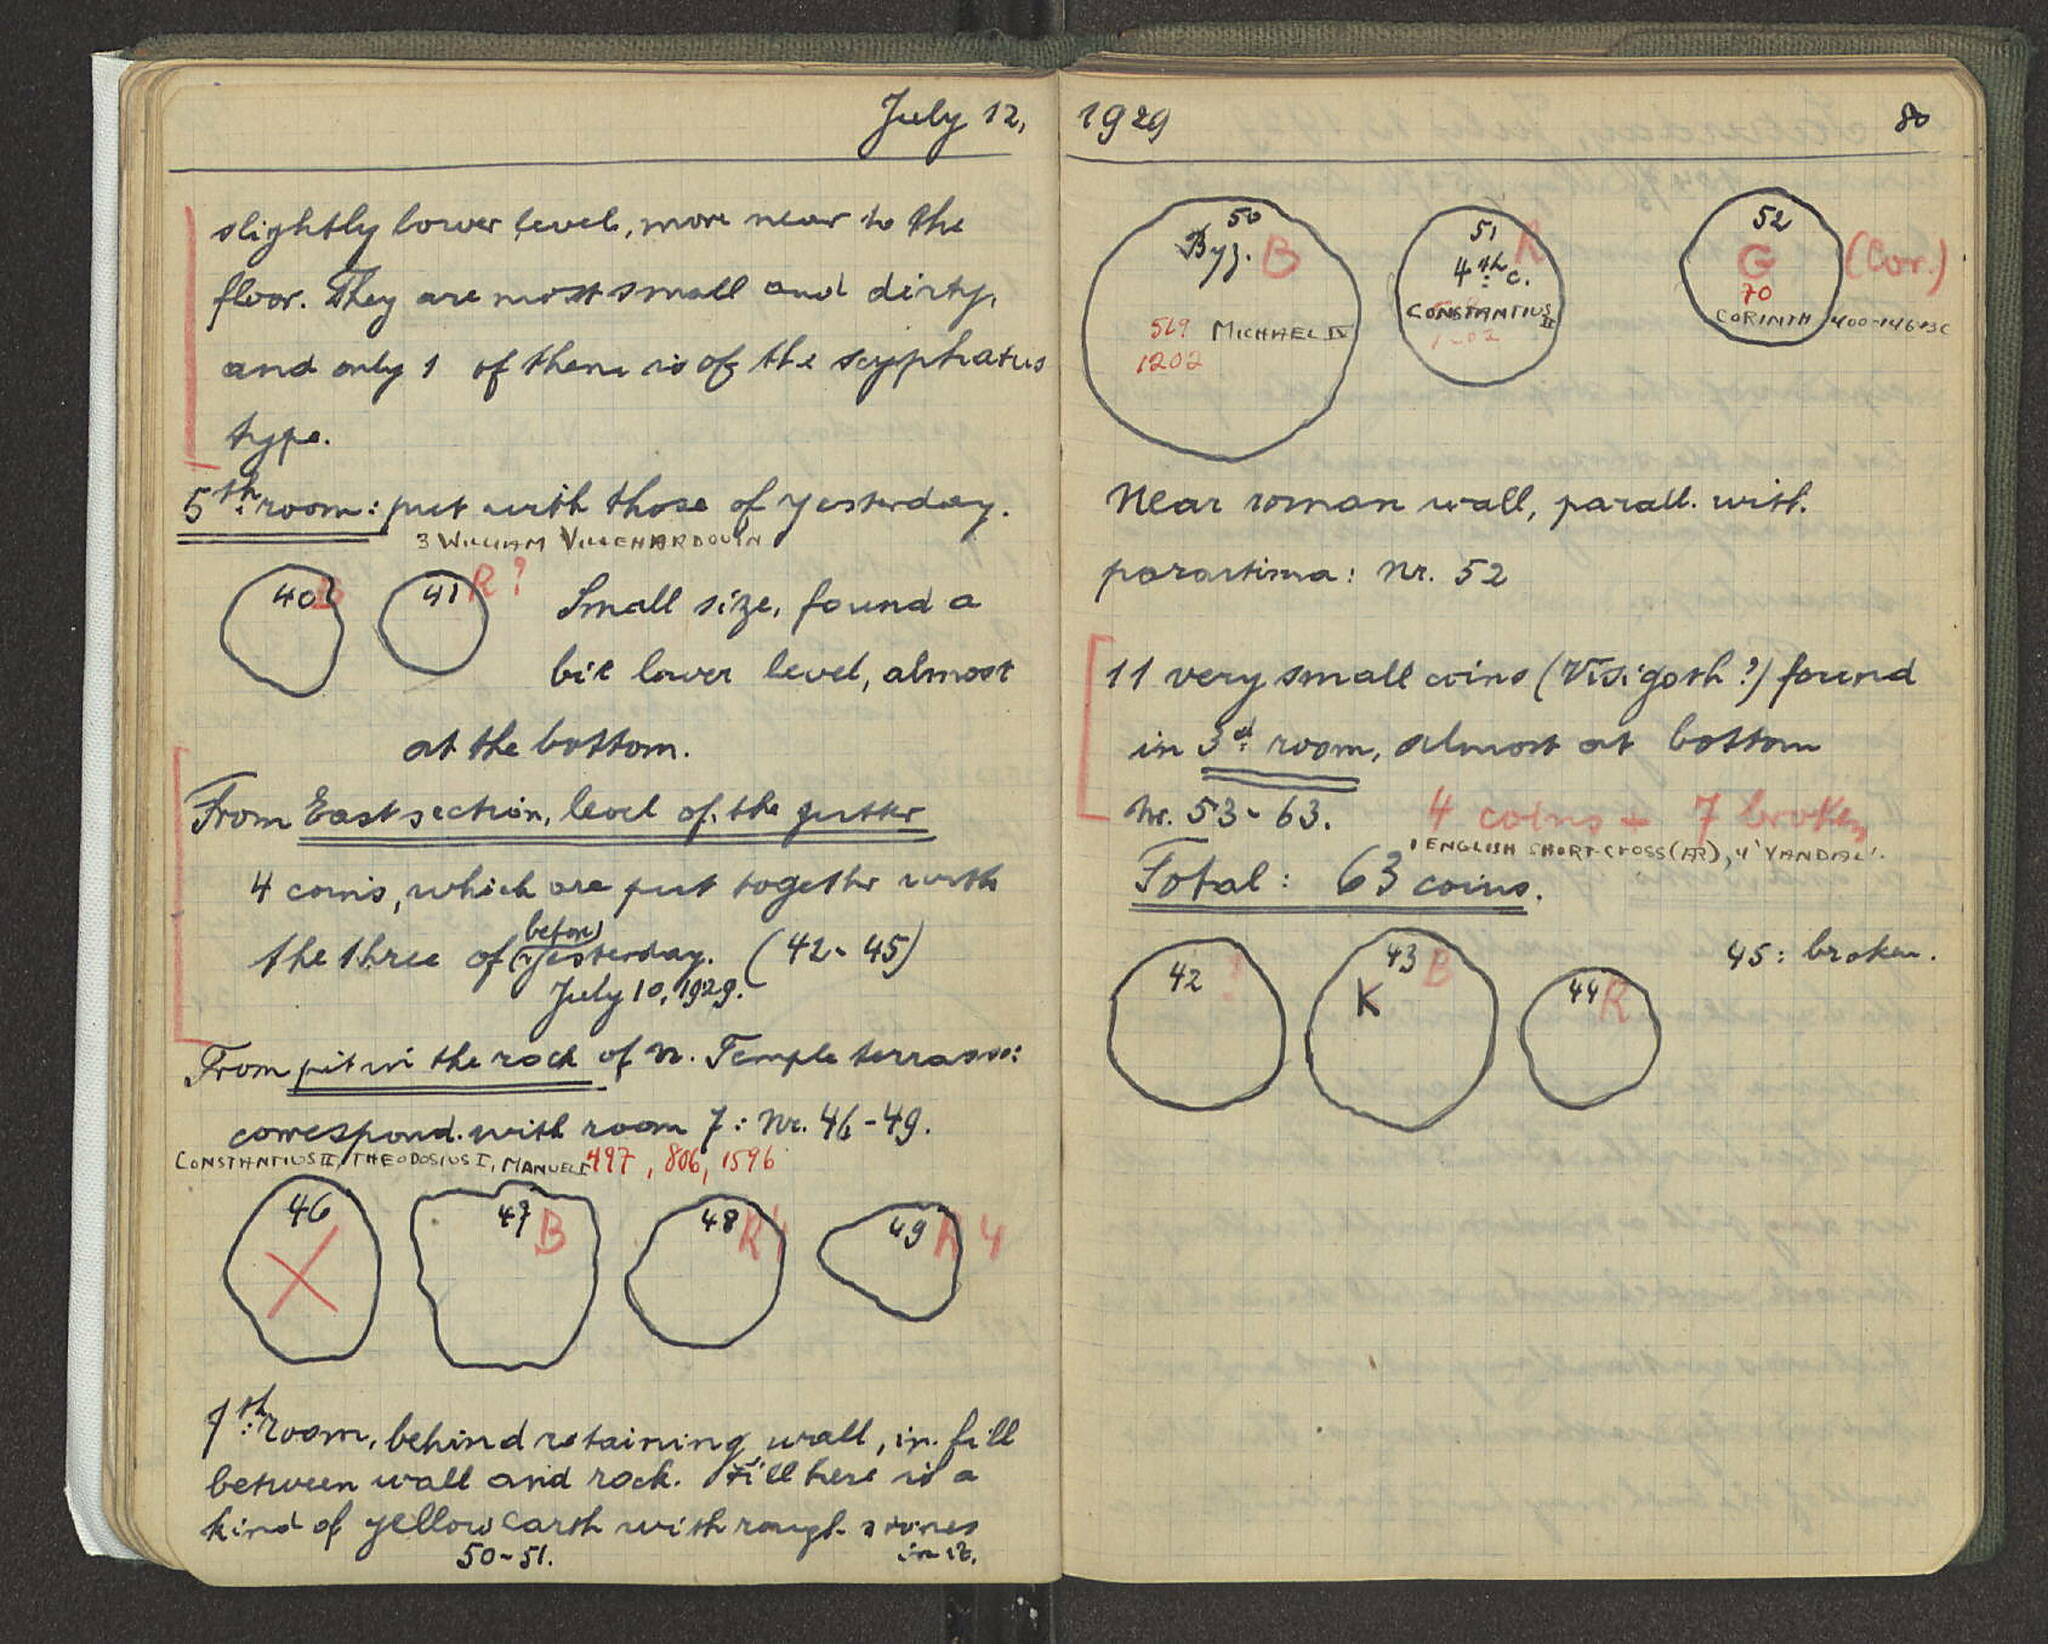 July 12,
slightly lower level, more near to the
floor. They are most small and dirty,
and only 1 of them is of the scyphatus
type.
5th room: put with those of yesterday.
3 WILLIAM VILLEHARDOUIN
40 B
41 R?
Small size, found a
bit lower level, almost
at the bottom.
From East section, level of the gutter
4 coins, which are put together with
the three of (before) yesterday. (42-45)
July 10, 1929.
From pit in the rock of N. Temple terrasse:
correspond. with room 7: Nr. 46-49.
CONSTANTIUS II, THEODOSIUS I, MANUEL I 497, 806, 1596
46
47 B
48 R4
49 R 4
7th room, behind retaining wall, in fill
between wall and rock. Fill here is a
kind of yellow earth with rough stones
50-51. in it.
1929 80
50
Byz. B
519 MICHAEL IV
1202
51 R
4th c.
CONSTANTIUS II
52
G (Cor.)
70
CORINTH 400-146 BC
Near roman wall, parall. with
parastima: Nr. 52
11 very small coins (Visigoth?) found
in 3d room, almost at bottom
Nr. 53-63. 4 coins + 7 broken
1 ENGLISH SHORT-CROSS (AR), 4 'VANDAL'.
Total: 63 coins.
42 ?
43 B
K
44 R
45: broken.